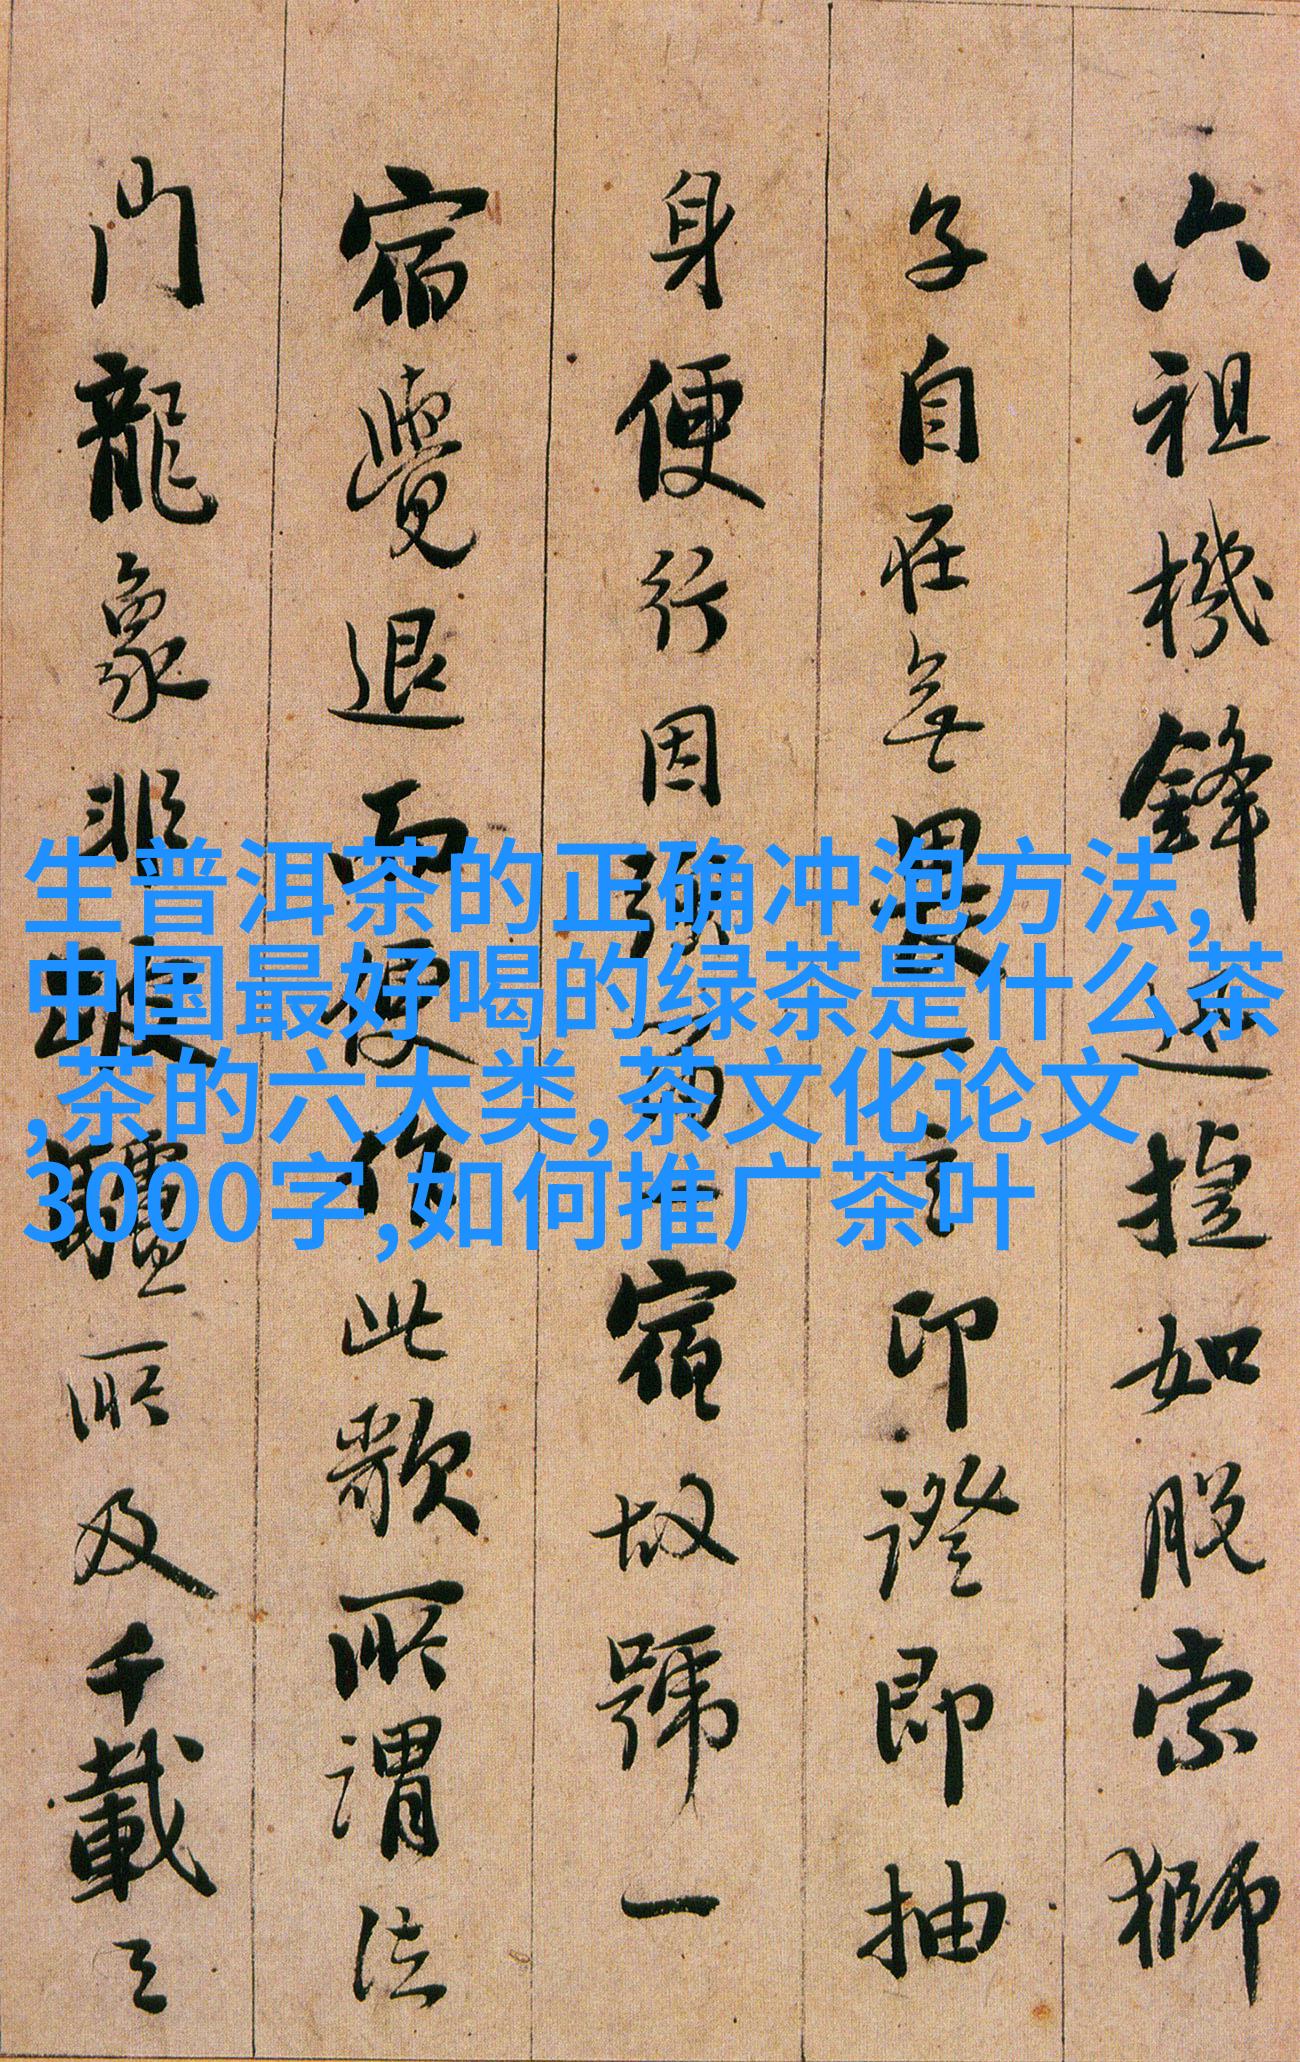 六祖機鋒迅捷如脱索獅
子自在無畏一言印證即抽
身便行因強留一宿故號一
宿覺退而便作此歌所謂法
門龍象非跛驢所及千載之
生普洱茶的正确冲泡方法,
中国最好喝的绿茶是什么茶
,茶的六大类,茶文化论文
3000字,如何推广茶叶